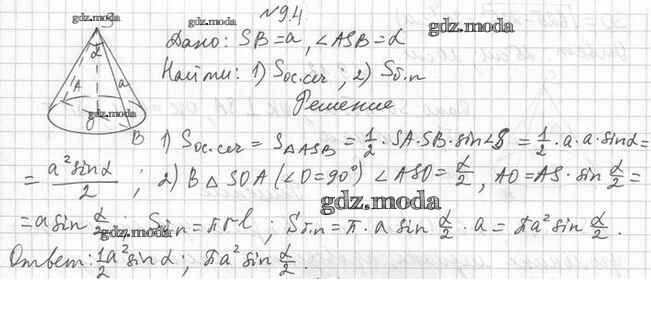 N9.4.
gdz.moda gdz.moda gdz.moda
Дано: SB=a, ∠ASB=α
Найти: 1) Sос.сеч; 2) Sб.п
Решение
S α A a B
gdz.moda
1) Sос.сеч = S△ASB = 1/2 · SA·SB·sin∠S = 1/2 · a·a·sinα =
= a²sinα/2 ; 2) В △SOA (∠O=90°) ∠ASO = α/2, AO = AS · sin α/2 =
gdz.moda
= a sin α/2 ; Sб.п = πrl ; Sб.п = π · a sin α/2 · a = πa² sin α/2 .
gdz.moda
Ответ: 1/2 a² sin α ; πa² sin α/2 .